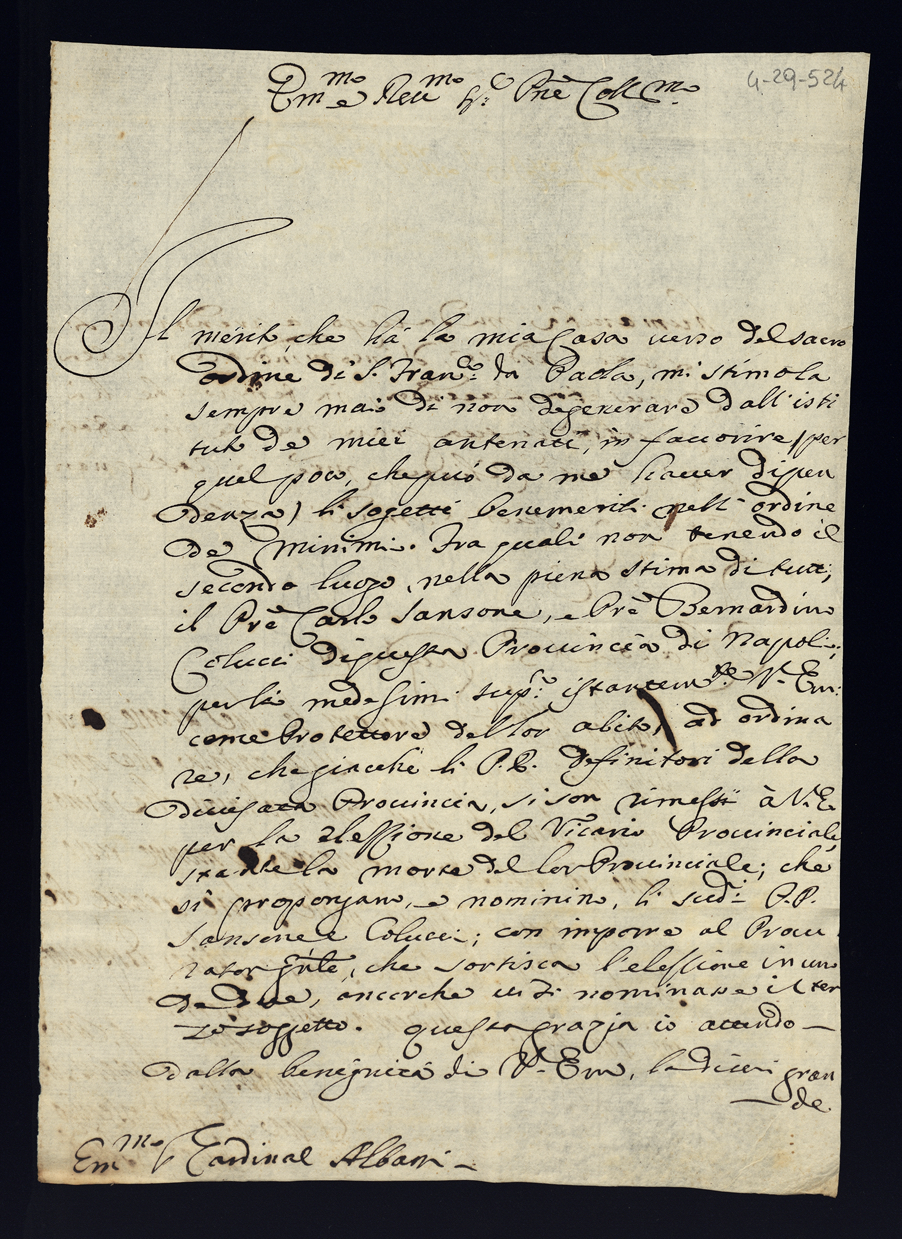 4-29-524
Em.mo e Reu.mo Sr. e Pne Coll.mo
Il merito, che hà la mia Casa verso del sacro
ordine di S. Fran.co da Paola, mi stimola
sempre mai di non degenerare dall'isti
tuto de miei antenati, in fauorire (per
quel poco, che può da me hauer dipen
denza) li sogetti benemeriti nell'ordine
de Minimi. Fra quali non tenendo il
secondo luogo, nella piena stima di tutti,
il Prē Carlo Sansone, e Prē Bernardino
Colucci di questa Prouincia di Napoli;
per li medesimi sup.co istantem.te V. Em:
come Protettore del lor abito, ad ordina
re, che giacchè li P.P. definitori della
diuisata Prouincia, si son rimessi à V. E
per la elessione del Vicario Prouinciale
stante la morte del lor Prouinciale; che
si propongano, e nominino, li sud.i P.P.
Sansone e Colucci; con imporre al Procu
rator Gn'le, che sortisca l'elessione in un
de due, ancorche vi si nominasse il ter
zo soggetto. questa grazia io attendo
dalla benignità di V. Em, la di cui gran
de
Em.mo Sr Cardinal Albani